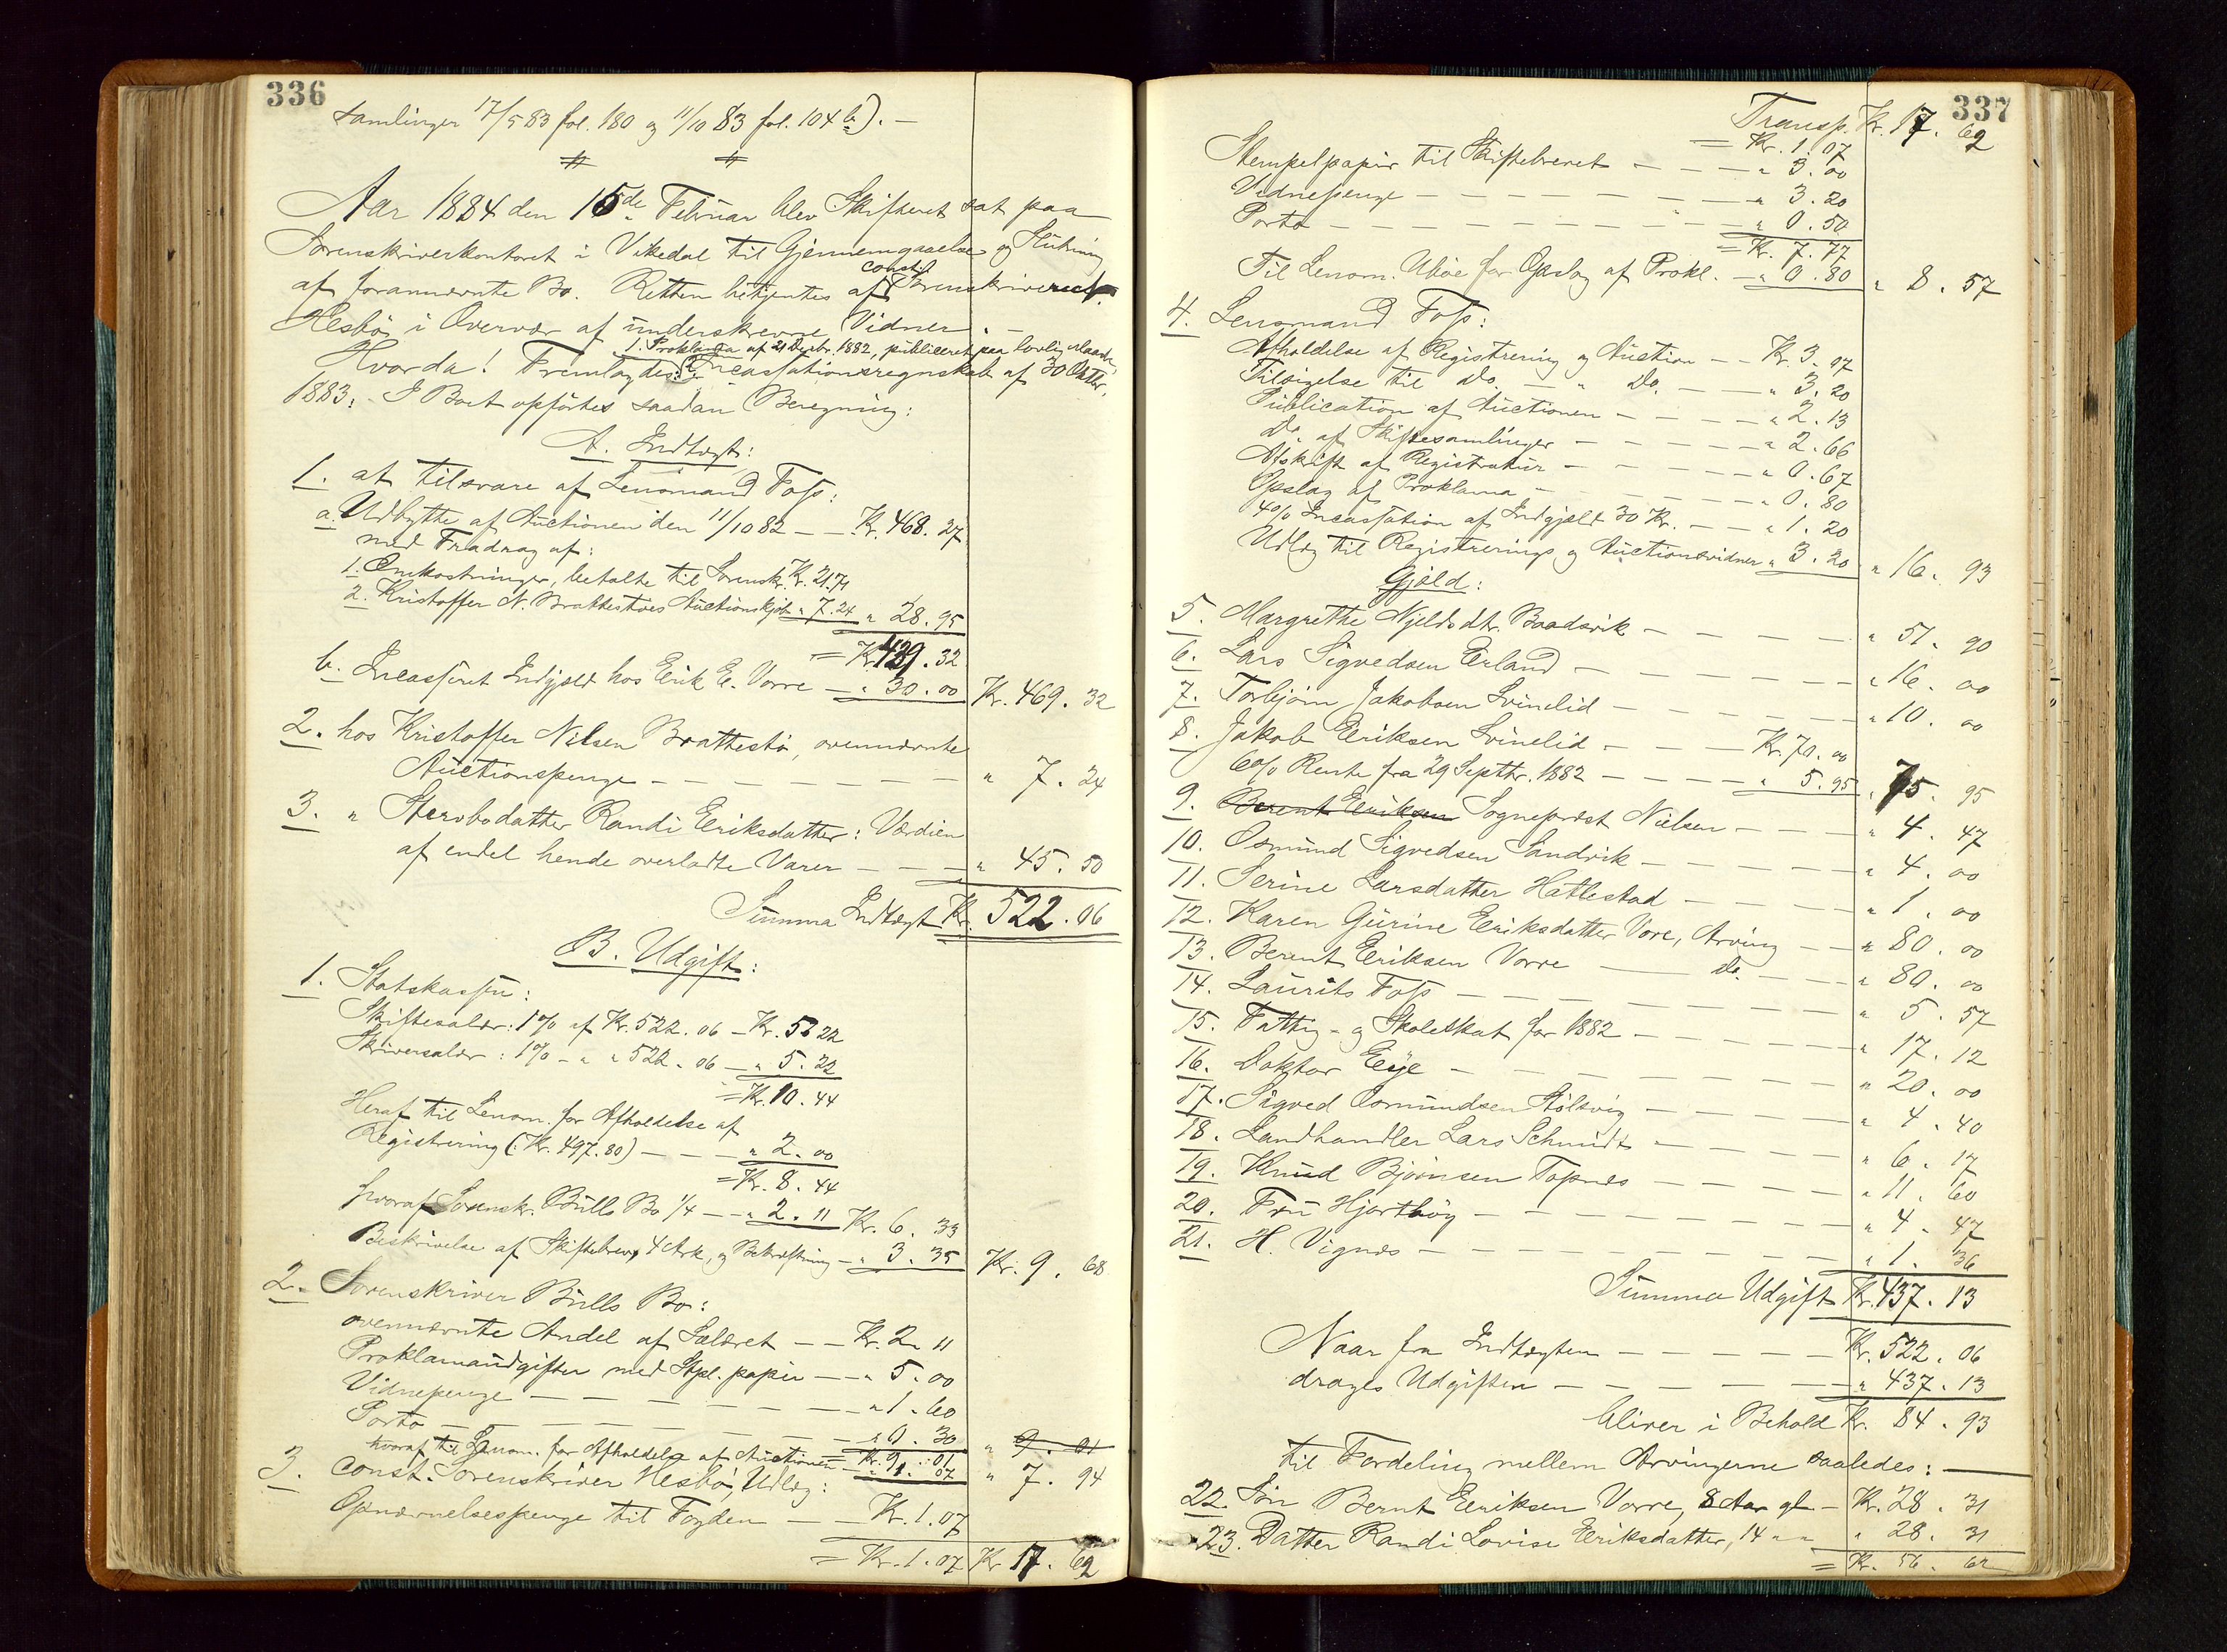 336
samlinger 17/5 83 fol. 180 og 11/10 83 fol. 104 b). —
Aar 1884 den 15de Februar blev Skifteret sat paa
Sorenskriverkontoret i Vikedal til Gjennemgaaelse og Slutning
af forannævnte Bo. Retten betjentes af const. Sorenskriver
Hesbø i Overvær af underskrevne Vidner. —
1. Proklama af 21 Decbr. 1882, publiceret paa lovlig Maade,
Hvorda! Fremlagdes: 2. Incassationsregnskab af 30 Oktbr.
1883. I Boet opførtes saadan Beregning:
A. Indtægt:
1. at tilsvare af Lensmand Foss:
a. Udbytte af Auctionen den 11/10 82 — — Kr. 468. 27
med Fradrag af:
1. Omkostninger, betalte til Sorenskr. Kr. 21.71
2. Kristoffer N. Brattestøes Auctionskjøb " 7.24 " 28. 95
= Kr. 439. 32
b. Incasseret Indgjæld hos Eerik E. Vorre — " 30. 00 Kr. 469. 32
2. hos Kristoffer Nilsen Brattestø, ovennævnte
Auctionspenge — — — — — — " 7. 24
3. " Stervbodatter Randi Eeriksdatter: Værdien
af endel hende overladte Varer — — — " 45. 50
Summa Indtægt Kr. 522. 06
B. Udgift:
1. Statskassen:
Skiftesalær: 1% af Kr. 522. 06 — Kr. 5. 22
Skriversalær: 1% — " " 522. 06 — " 5. 22
= Kr. 10. 44
Heraf til Lensm. for Afholdelse af
Registrering (: Kr. 497.80) — — — " 2. 00
= Kr. 8. 44
hvoraf Sorenskr. Bulls Bo 1/4 — — " 2. 11 Kr. 6. 33
Beskrivelse af Skiftebrev, 4 Ark, og Bekræftning — " 3. 35 Kr. 9. 68
2. Sorenskriver Bulls Bo:
ovennævnte Andel af Salæret — — Kr. 2. 11
Proklamaudgifter med Stpl. papir — — " 5. 00
Vidnepenge — — — — — — " 1. 60
Porto — — — — — — " 0. 30 " 9. 01
hvoraf til Lensm. for Afholdelse af Auctionen = Kr. 9. 01
" 1. 07 " 7. 94
3. const. Sorenskriver Hesbø, Udlæg:
Opnævnelsespenge til Fogden — — Kr. 1. 07
= Kr. 1. 07 Kr. 17. 62
337
Transp. Kr. 17. 62
= Kr. 1. 07
Stempelpapir til Skiftebrevet — — — " 3. 00
Vidnepenge — — — — — — " 3. 20
Porto — — — — — — — " 0. 50
= Kr. 7. 77
Til Lensm. Ubøe for Opslag af Prokl. — " 0. 80 " 8. 57
4. Lensmand Foss:
Afholdelse af Registrering og Auction — — Kr. 3. 07
Tilsigelse til do. — " — do. — — " 3. 20
Publication af Auctionen — — — — " 2. 13
do. af Skiftesamlinger — — — — " 2. 66
Afskrift af Registratur — — — — " 0. 67
Opslag af Proklama — — — — — " 0. 80
4% Incassation af Indgjæld 30 Kr. — — " 1. 20
Udlæg til Registrerings og Auctionsvidner " 3. 20 " 16. 93
Gjæld:
5. Margrethe Njeldsdtr. Baadsvik — — — " 51. 90
6. Lars Sigvedsen Eerland — — — — " 16. 00
7. Torbjørn Jakobsen Svinelid — — — — " 10. 00
8. Jakob Eeriksen Svinelid — — — Kr. 70. 00
6% Rente fra 29 Septbr. 1882 — — — — " 5. 95 " 75. 95
9. Berent Eeriksen Sogneprest Nielsen — — — " 4. 47
10. Osmund Sigvedsen Sandvik — — — — " 4. 00
11. Serine Larsdatter Hatlestad — — — — " 1. 00
12. Karen Gurine Eeriksdatter Vore, Arving — — " 80. 00
13. Berent Eeriksen Vorre — — do. — — " 80. 00
14. Laurits Foss — — — — — — " 5. 57
15. Fattig- og Skoleskat for 1882 — — — — " 17. 12
16. Doktor Eeye — — — — — — " 20. 00
17. Sigved Osmundsen Stølsvig — — — — " 4. 40
18. Landhandler Lars Schmidt — — — — " 6. 17
19. Knud Bjørnsen Topnes — — — — " 11. 60
20. Fru Hjorthøy — — — — — — " 4. 47
21. H. Vignes — — — — — — — " 1. 36
Summa Udgift Kr. 437. 13
Naar fra Indtægten — — — — — Kr. 522. 06
drages Udgiften — — — — — — " 437. 13
bliver i Behold Kr. 84. 93
til Fordeling mellem Arvingerne saaledes: —
22. Søn Bernt Eeriksen Vorre, 8 Aar gl. — Kr. 28. 31
23. Datter Randi Lovise Eeriksdatter, 14 " " " 28. 31
= Kr. 56. 62